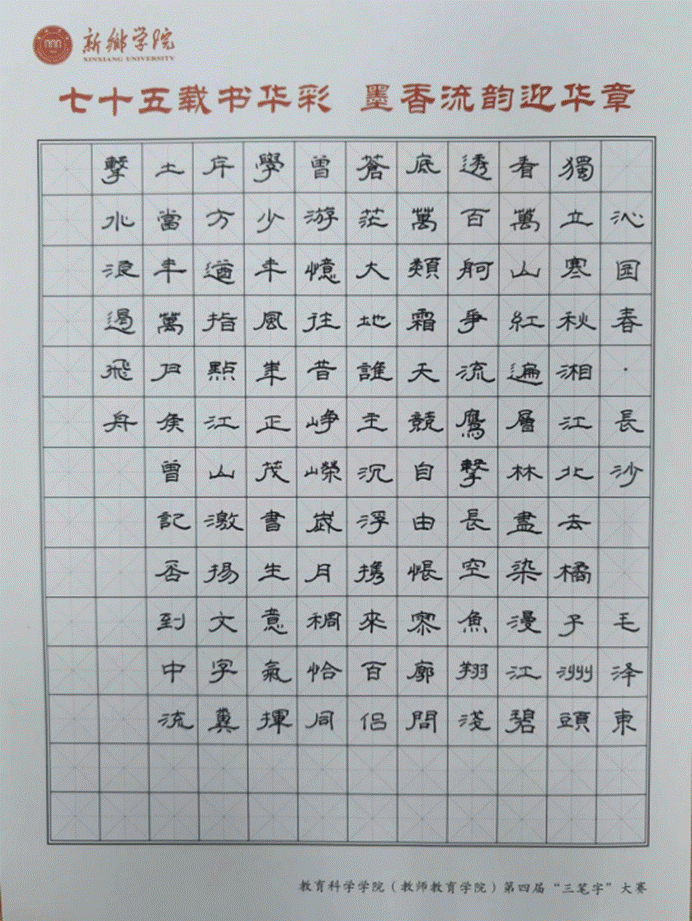 新鄉学院
XINXIANG UNIVERSITY
七十五载书华彩 墨香流韵迎华章
沁园春·長沙 毛泽東
獨立寒秋湘江北去橘子洲頭
看萬山紅遍層林盡染漫江碧
透百舸爭流鷹擊長空魚翔淺
底萬類霜天競自由悵寥廓問
蒼茫大地誰主沉浮携來百侣
曾游憶往昔崢嶸歲月稠恰同
學少年風華正茂書生意氣揮
斥方遒指點江山激揚文字糞
土當年萬户侯曾記否到中流
擊水浪遏飛舟
教育科学学院（教师教育学院）第四届“三笔字”大赛